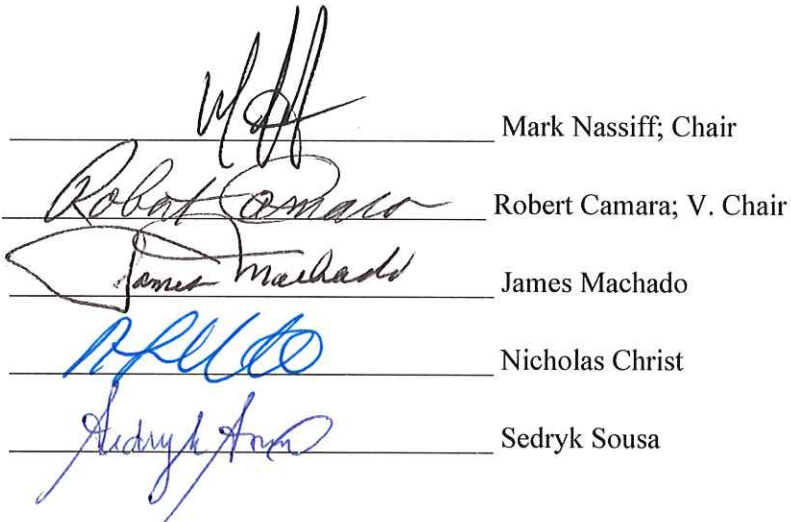 Mark Nassiff; Chair
Robert Camara Robert Camara; V. Chair
James Machado James Machado
Nicholas Christ
Sedryk Sousa Sedryk Sousa